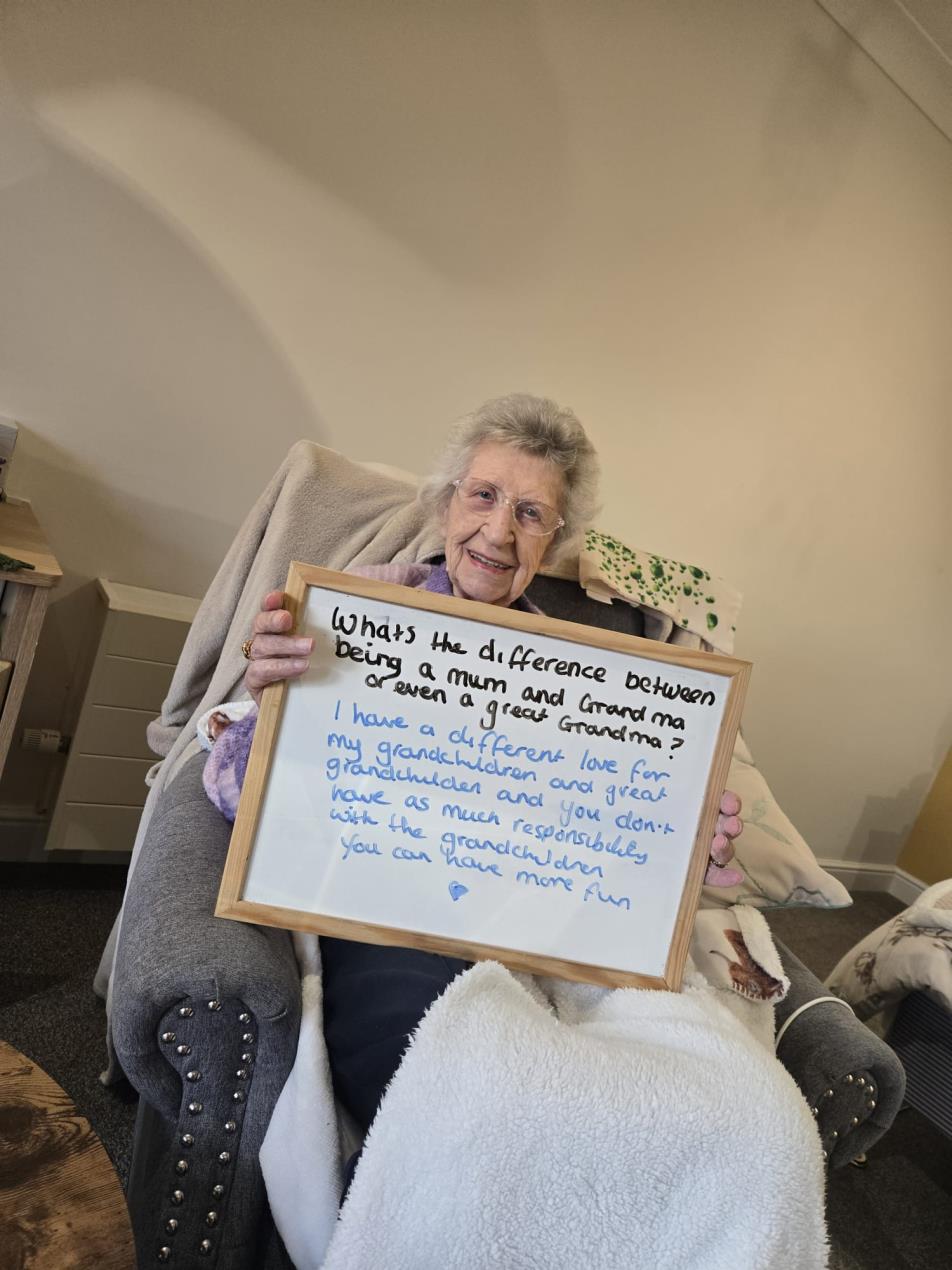 Whats the difference between
being a mum and Grandma
or even a great Grandma?
I have a different love for
my grandchildren and great
grandchilden and you don't
have as much responsibility
with the grandchildren
You can have more fun